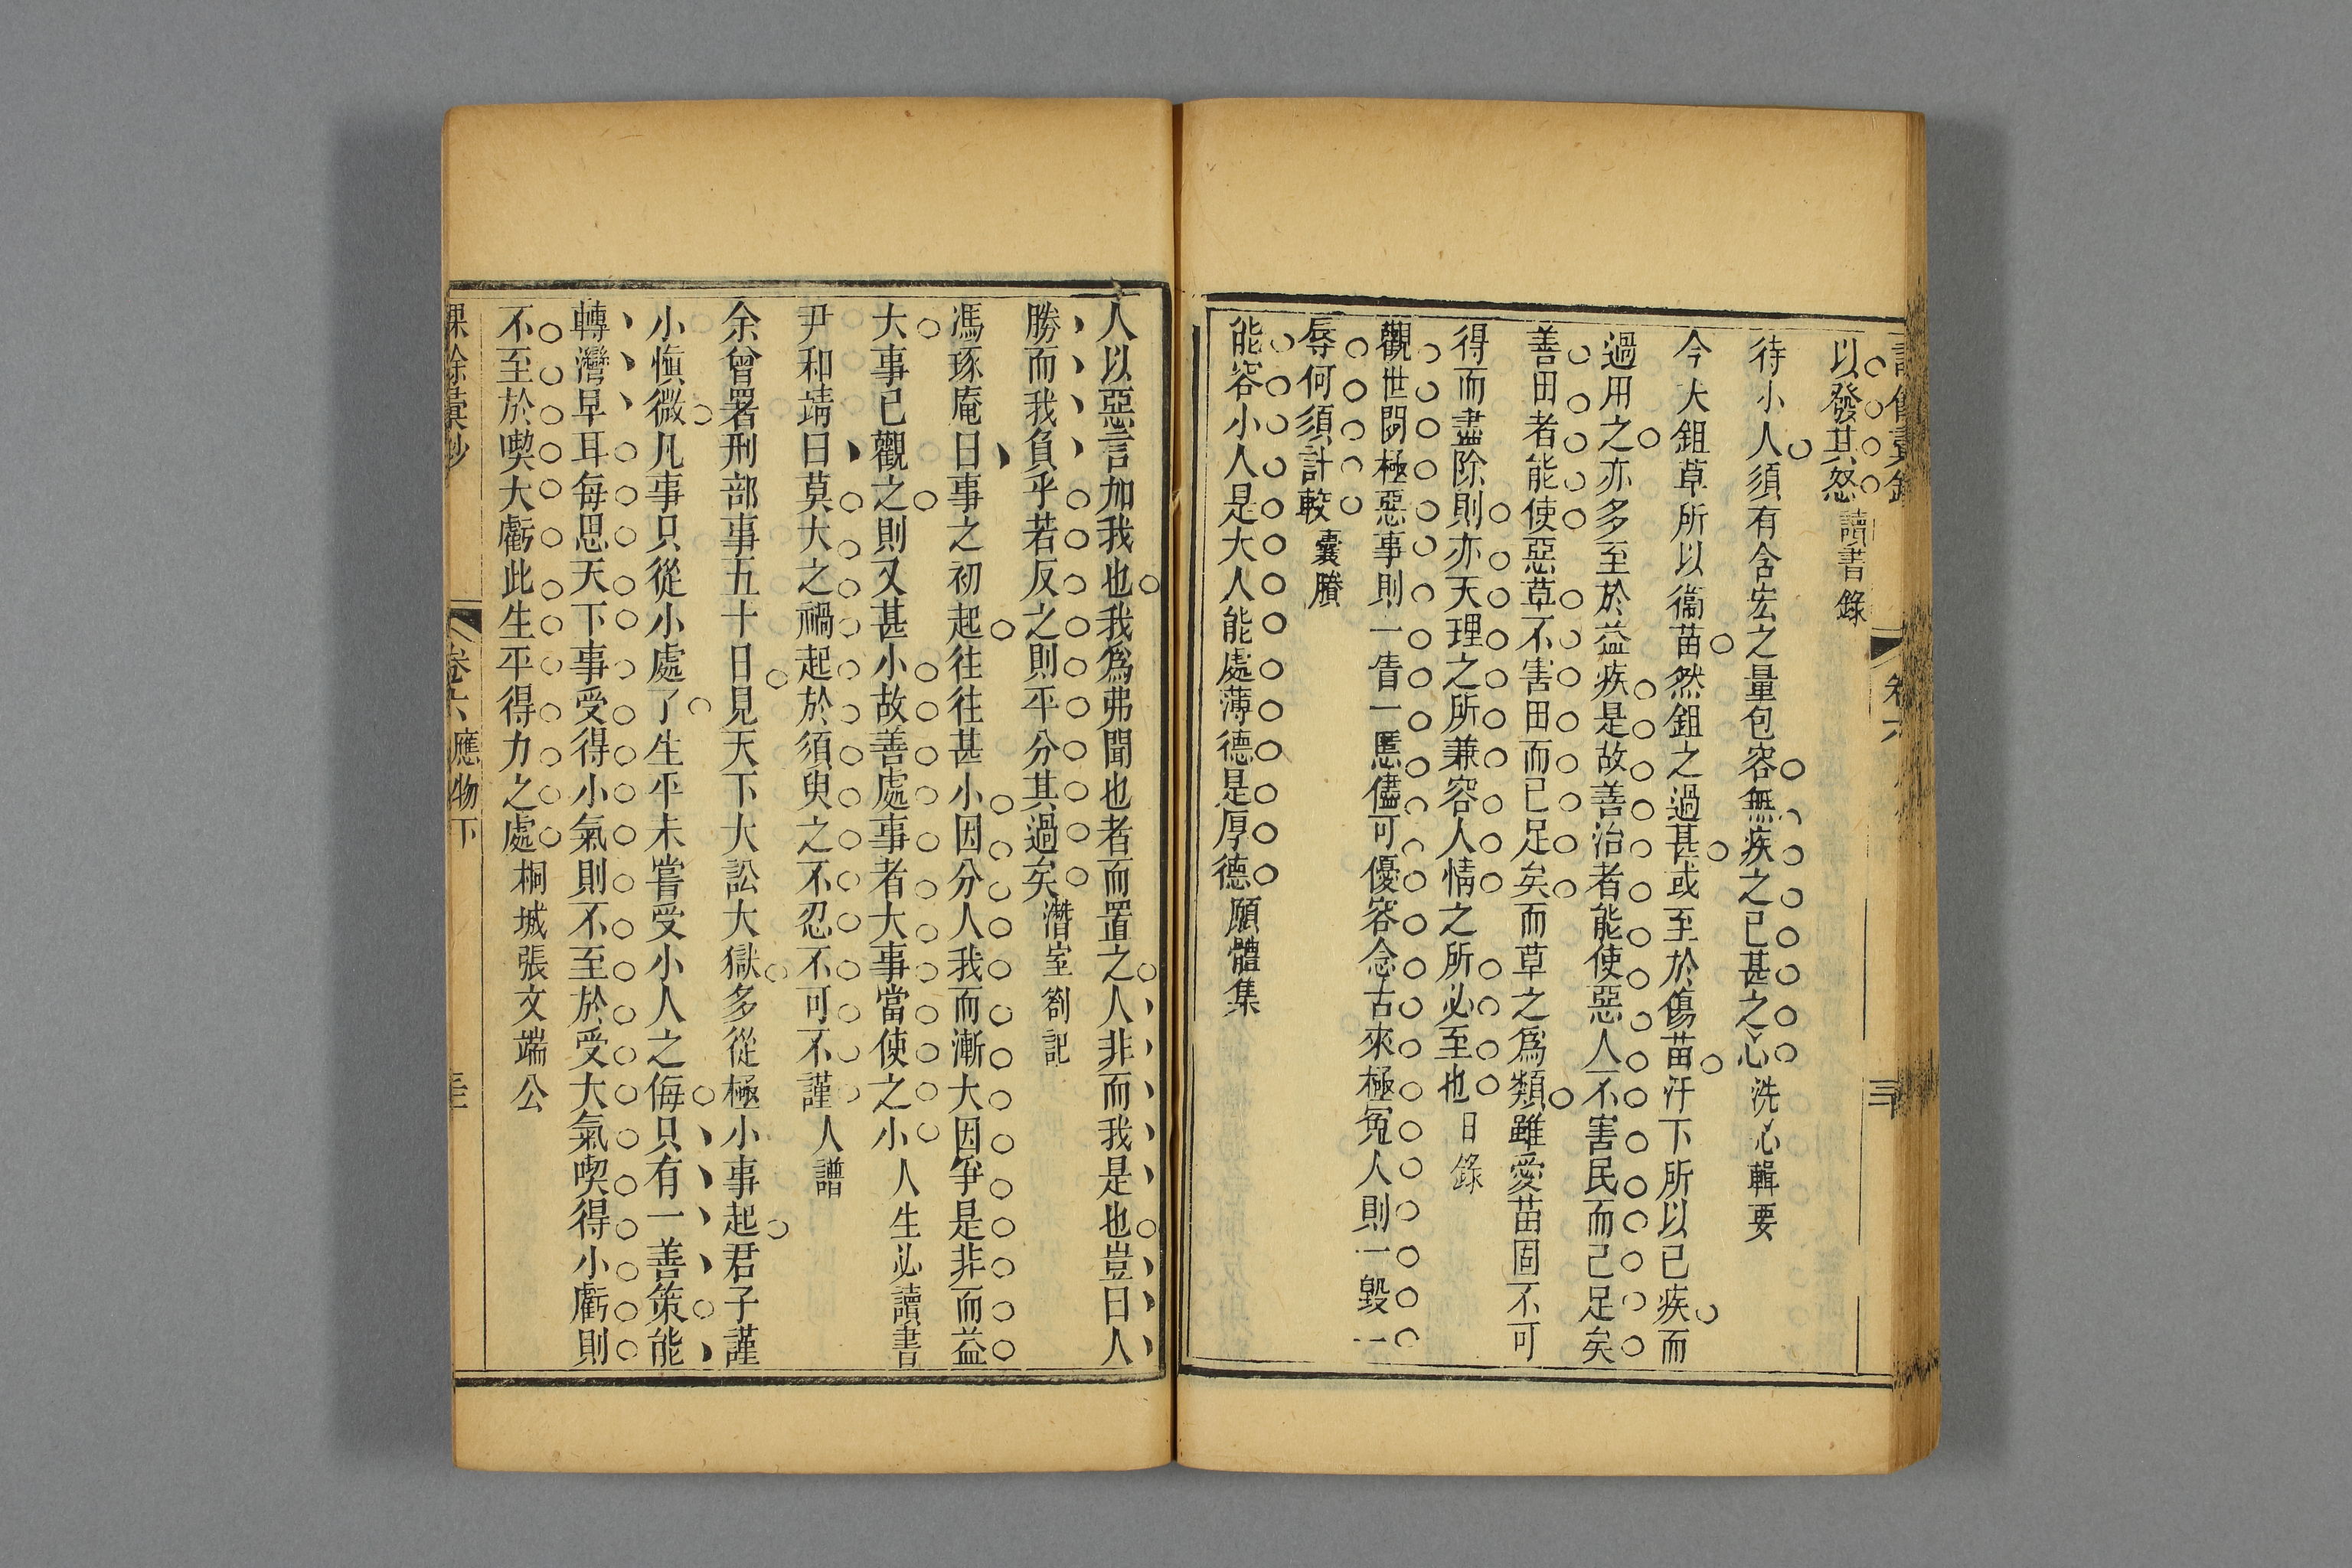 以發其怒讀書錄
待小人須有含宏之量包容無疾之已甚之心洗心輯要
今大鉏草所以衞苗然鉏之過甚或至於傷苗汗下所以已疾而
過用之亦多至於益疾是故善治者能使惡人不害民而已足矣
善田者能使惡草不害田而已足矣而草之爲類雖愛苗固不可
得而盡除則亦天理之所兼容人情之所必至也日錄
觀世間極惡事則一眚一慝儘可優容念古來極冤人則一毀一
辱何須計較囊賸
能容小人是大人能處薄德是厚德願體集
卷六
人以惡言加我也我爲弗聞也者而置之人非而我是也豈曰人
勝而我負乎若反之則平分其過矣潛室劄記
馮琢庵曰事之初起往往甚小因分人我而漸大因爭是非而益
大事已觀之則又甚小故善處事者大事當使之小人生必讀書
尹和靖曰莫大之禍起於須臾之不忍不可不謹人譜
余曾署刑部事五十日見天下大訟大獄多從極小事起君子謹
小愼微凡事只從小處了生平未嘗受小人之侮只有一善策能
轉灣早耳每思天下事受得小氣則不至於受大氣喫得小虧則
不至於喫大虧此生平得力之處桐城張文端公
卷六應物下